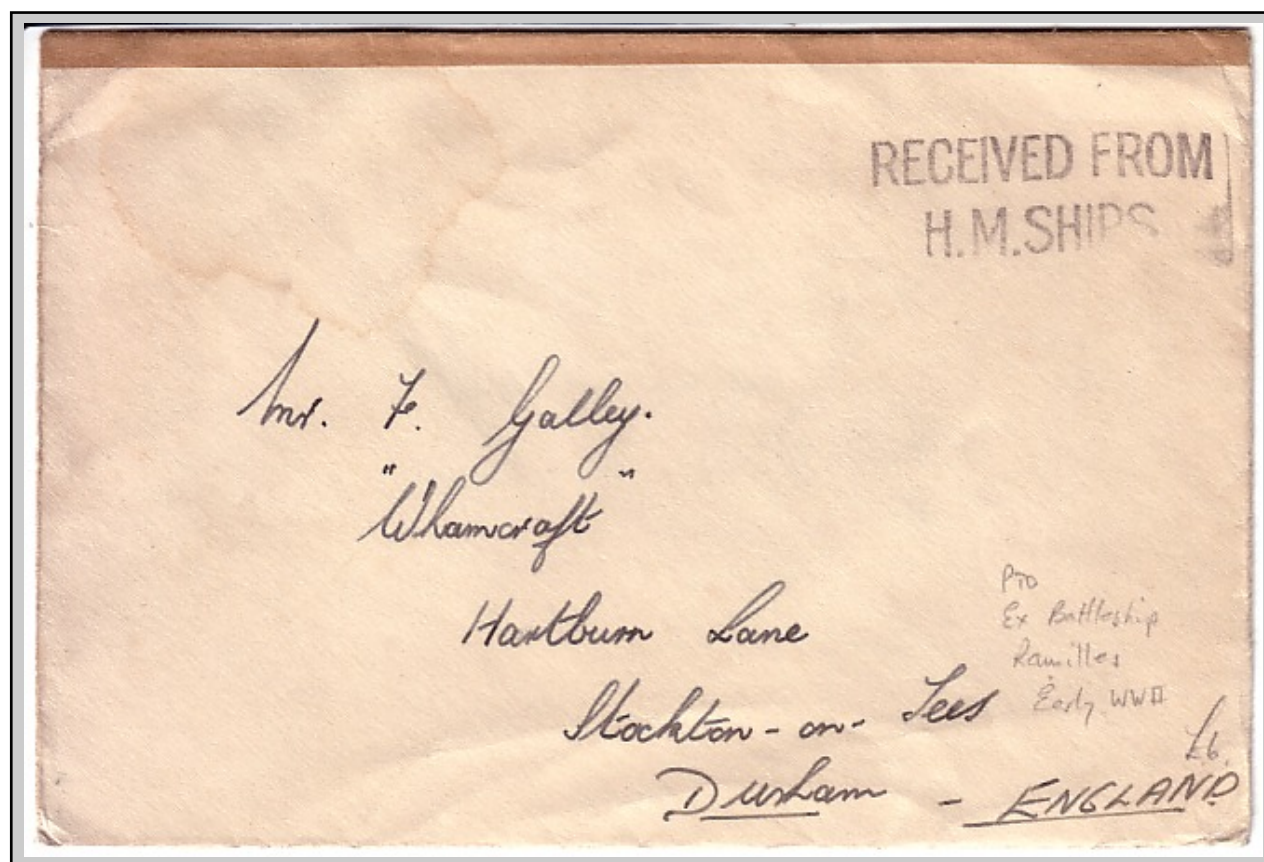 RECEIVED FROM
H.M.SHIPS
Mr. F. Galley.
"Whamcraft"
Hartburn Lane
Stockton-on-Tees
Durham - ENGLAND
PTO
Ex Battleship
Ramilles
Early WWII
£6.